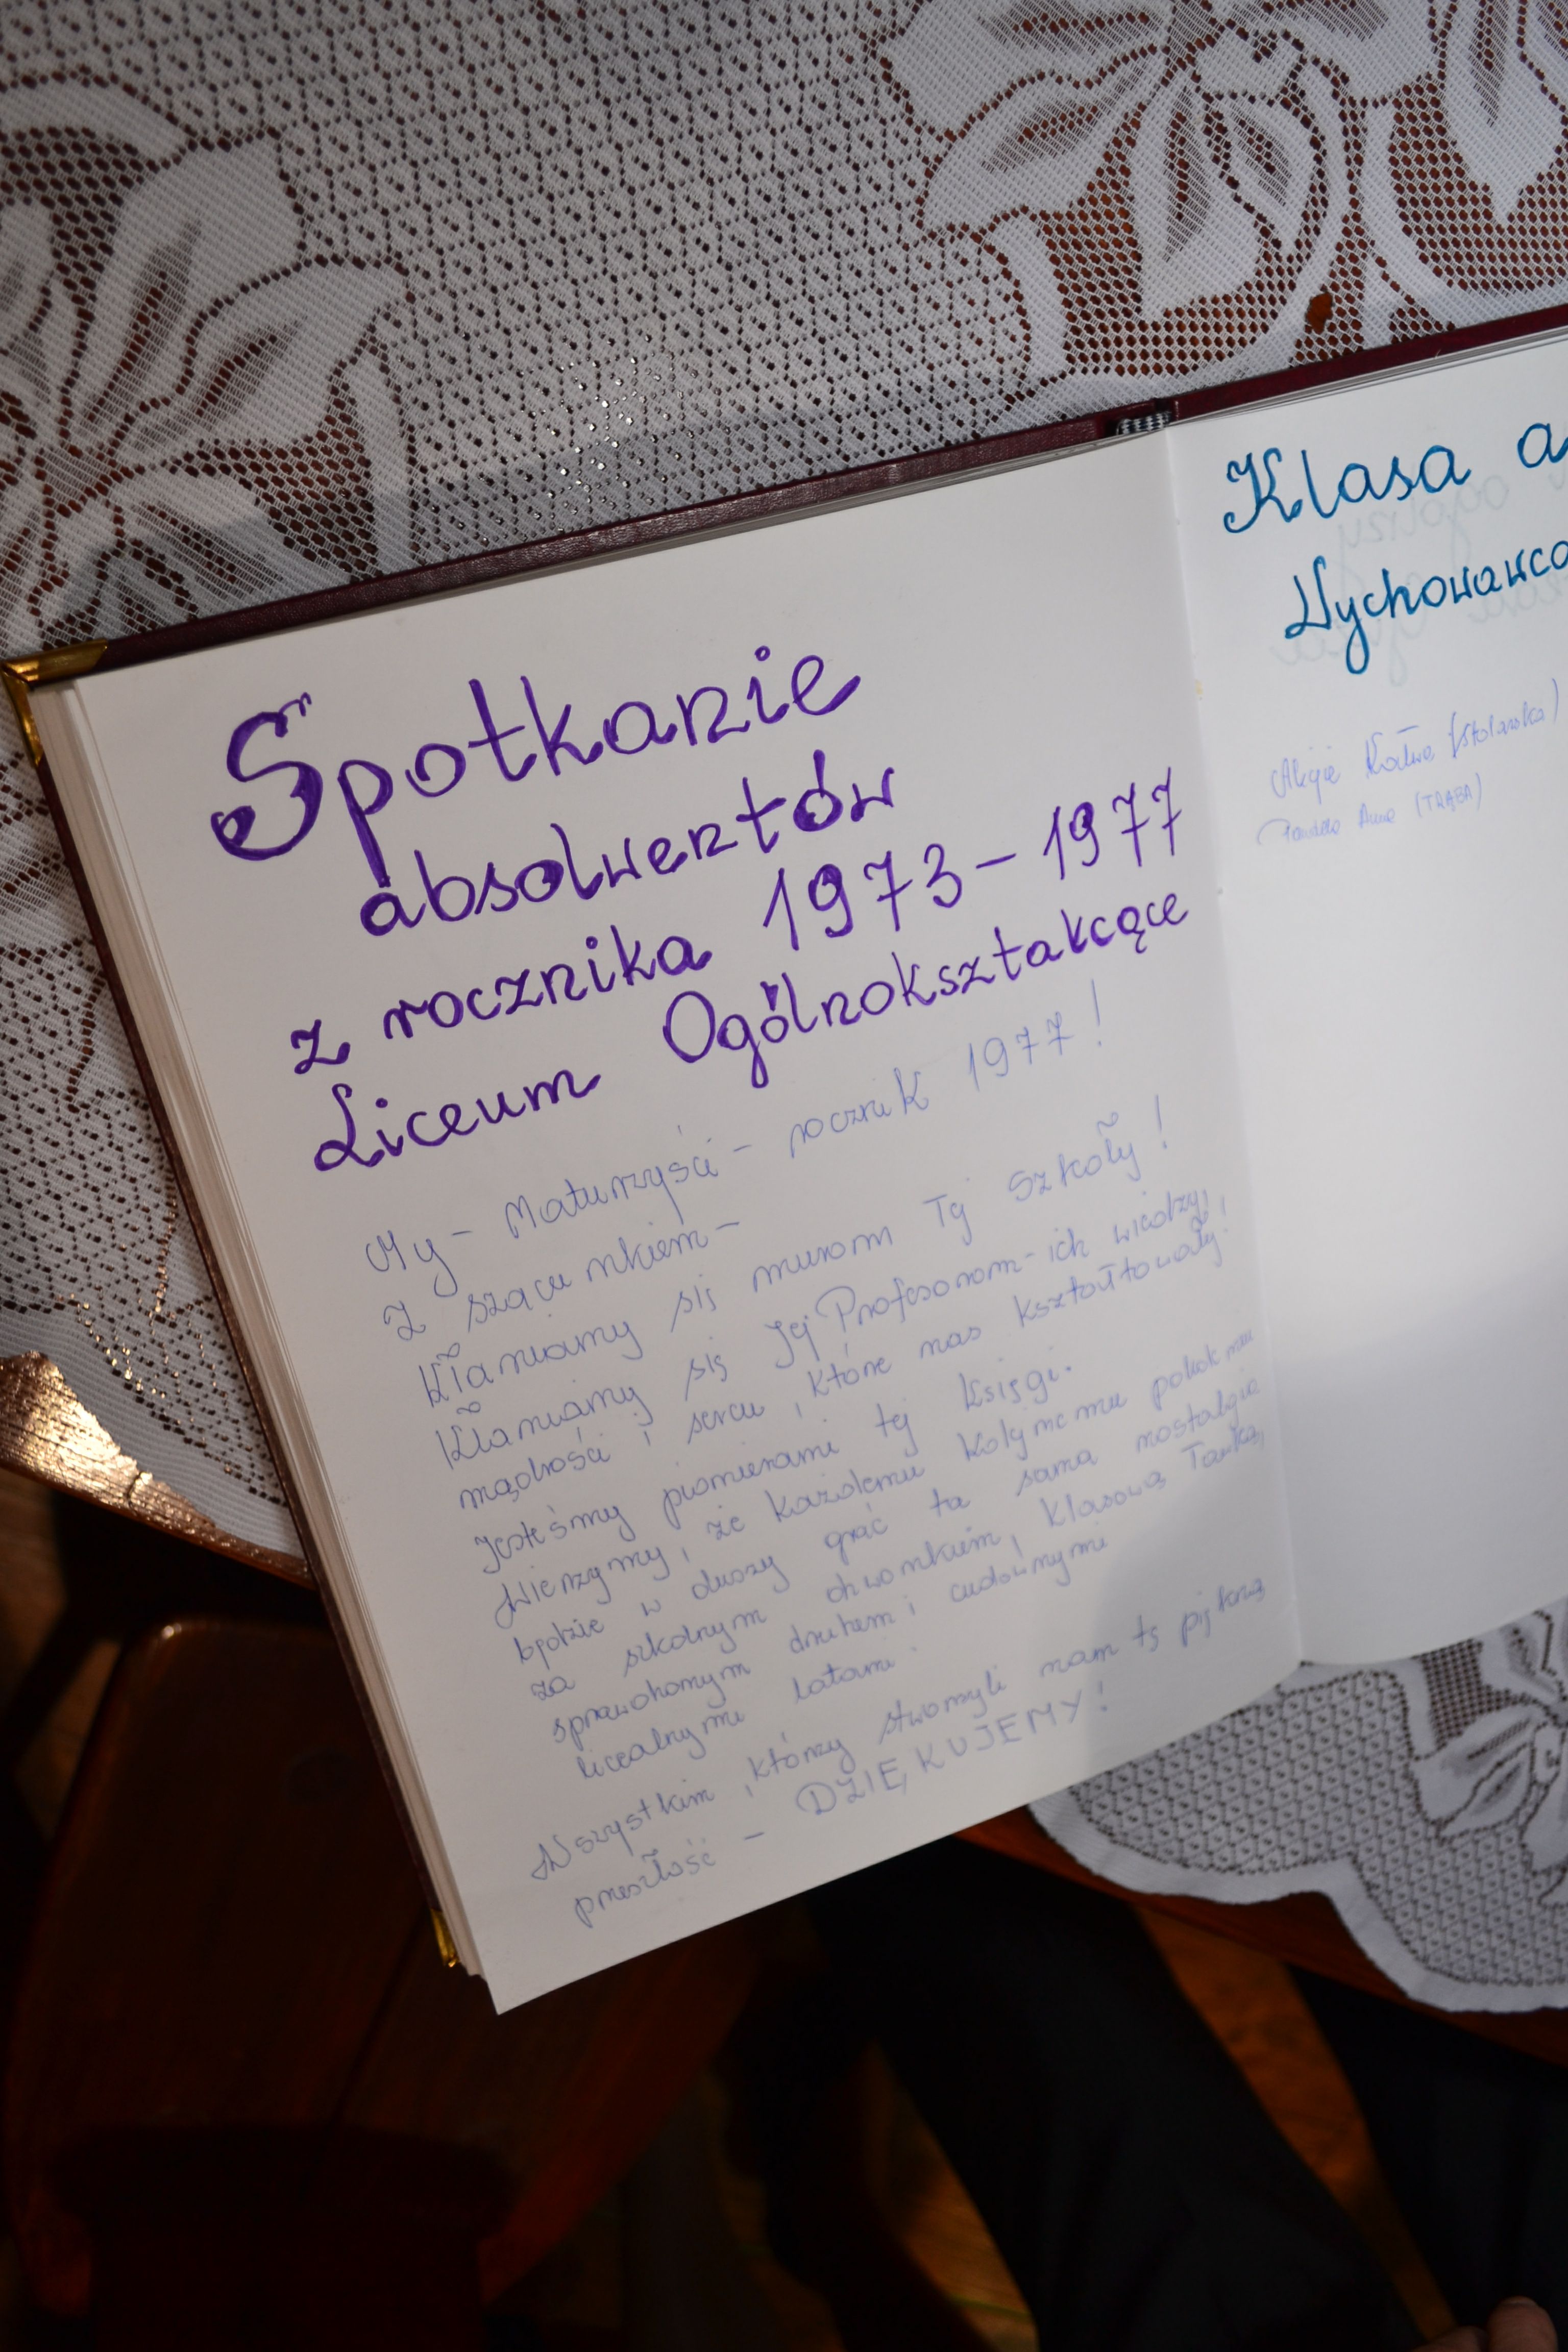 Spotkanie
absolwentów
z rocznika 1973-1977
Liceum Ogólnokształcące
My - Maturzyści - rocznik 1977!
Z szacunkiem -
Kłaniamy się murom Tej Szkoły!
Kłaniamy się Jej Profesorom - ich wiedzy,
mądrości i sercu, które nas kształtowały!
Jesteśmy pionierami tej Księgi.
Wierzymy, że każdemu kolejnemu pokoleniu
będzie w duszy grać ta sama nostalgia
za szkolnym dzwonkiem, klasową ławką,
sprawdzonym druhem i cudownymi
licealnymi latami.
Wszystkim, którzy stworzyli nam tę piękną
przeszłość - DZIĘKUJEMY!
Klasa a
Wychowawca
(Stolarska)
Anna (TRĄBA)